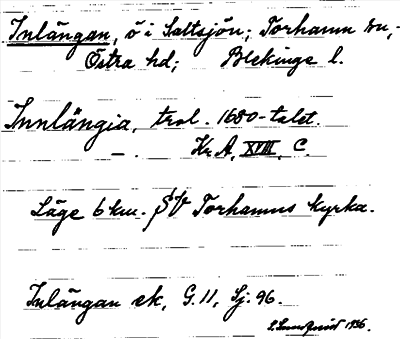 Inlängan, ö i Saltsjön; Torhamn sn,
Östra hd; Blekinge l.
Innlängia, trol. 1680-talet.
Kr A, XVIII, C.
Läge 6 km. SV Torhamns kyrka.
Inlängan ek, G. 11, Sj. 96.
1936.